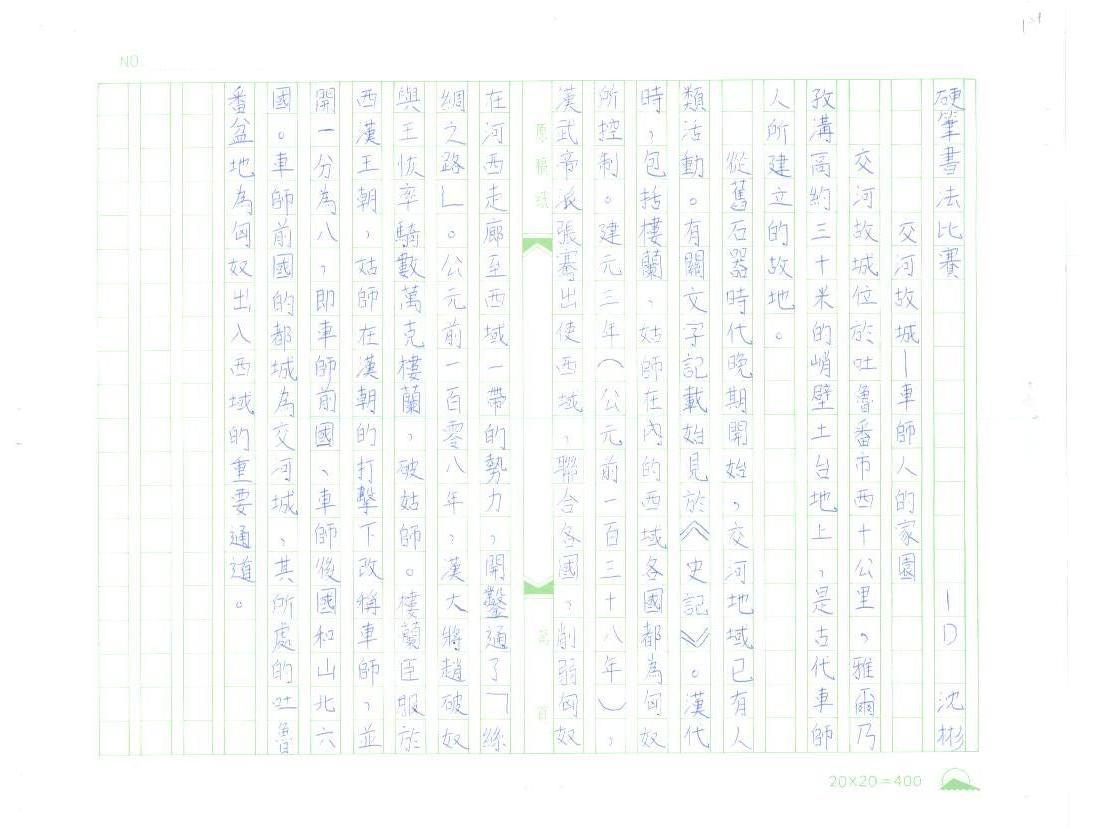 1st
NO.
硬筆書法比賽 1D 沈彬
交河故城—車師人的家園
交河故城位於吐魯番市西十公里，雅爾乃
孜溝高約三十米的峭壁土台地上，是古代車師
人所建立的故地。
從舊石器時代晚期開始，交河地域已有人
類活動。有關文字記載始見於《史記》。漢代
時，包括樓蘭、姑師在內的西域各國都為匈奴
所控制。建元三年（公元前一百三十八年），
漢武帝派張騫出使西域，聯合各國，削弱匈奴
原稿紙 第 頁
在河西走廊至西域一帶的勢力，開鑿通了「絲
綢之路」。公元前一百零八年，漢大將趙破奴
與王恢率騎數萬克樓蘭，破姑師。樓蘭臣服於
西漢王朝，姑師在漢朝的打擊下改稱車師，並
開一分為八，即車師前國、車師後國和山北六
國。車師前國的都城為交河城，其所處的吐魯
番盆地為匈奴出入西域的重要通道。
20×20=400